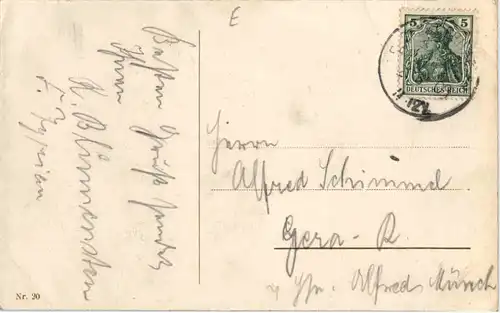 E
Besten Gruß sendet
Ihnen
K. Blumenstein
F. Zyrian
5 5
DEUTSCHES REICH
Herrn
Alfred Schimmel
Gera - R.
Alfred Münch
Nr. 20